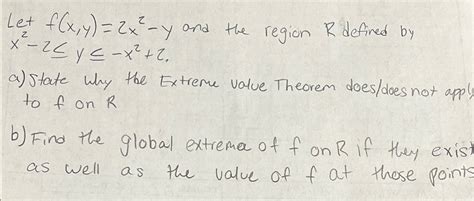 Let f(x,y)=2x²-y and the region R defined by
x²-2≤ y ≤ -x²+2.
a) State why the Extreme value Theorem does/does not apply
to f on R
b) Find the global extrema of f on R if they exist
as well as the value of f at those points